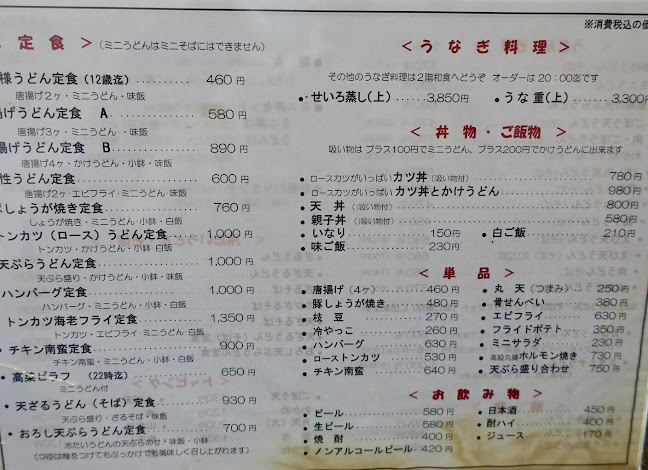 定食 ＞（ミニうどんはミニそばにはできません）
様うどん定食（12歳迄） 460円
唐揚げ2ヶ・ミニうどん・味飯
揚げうどん定食 A 580円
唐揚げ3ヶ・ミニうどん・味飯
揚げうどん定食 B 890円
唐揚げ4ヶ・かけうどん・小鉢・味飯
性うどん定食 600円
唐揚げ2ヶ・エビフライ・ミニうどん・味飯
しょうが焼き定食 760円
しょうが焼き・ミニうどん・小鉢・白飯
トンカツ（ロース）うどん定食 1,000円
トンカツ・かけうどん・小鉢・味飯
天ぷらうどん定食 1,000円
天ぷら盛り・かけうどん・小鉢・味飯
ハンバーグ定食 1,000円
ハンバーグ・ミニうどん・小鉢・白飯
トンカツ海老フライ定食 1,350円
トンカツ・エビフライ・ミニうどん・白飯
・チキン南蛮定食 900円
チキン南蛮・ミニうどん・小鉢・白飯
・高菜ピラフ （22時迄） 650円
ミニうどん付
・天ざるうどん（そば）定食 930円
天ぷら盛り・ざるそば・味飯
・おろし天ぷらうどん定食 700円
冷たいうどんの天ぷらのせ・味飯・小鉢
（つゆは麺をつけてもぶっかけても美味しく召し上がれます）
※消費税込の価
＜うなぎ料理＞
その他のうなぎ料理は2階和食へどうぞ オーダーは20：00迄です
・せいろ蒸し(上) 3,850円 ・うな重(上) 3,300円
＜丼物・ご飯物＞
吸い物は プラス100円でミニうどん、プラス200円でかけうどんに出来ます
・ロースカツがいっぱい カツ丼（吸い物付） 780円
・ロースカツがいっぱい カツ丼とかけうどん 980円
・天丼（吸い物付） 800円
・親子丼（吸い物付） 580円
・いなり 150円 ・白ご飯 210円
・味ご飯 230円
＜単品＞
・唐揚げ（4ヶ） 460円 ・丸天（つまみ） 250円
・豚しょうが焼き 480円 ・骨せんべい 380円
・枝豆 270円 ・エビフライ 630円
・冷やっこ 260円 ・フライドポテト 350円
・ハンバーグ 630円 ・ミニサラダ 230円
・ローストンカツ 530円 ・ホルモン焼き 730円
・チキン南蛮 640円 ・天ぷら盛り合わせ 750円
＜お飲み物＞
・ビール 580円 ・日本酒 450円
・生ビール 580円 ・酎ハイ 400円
・焼酎 400円 ・ジュース 170円
・ノンアルコールビール 420円